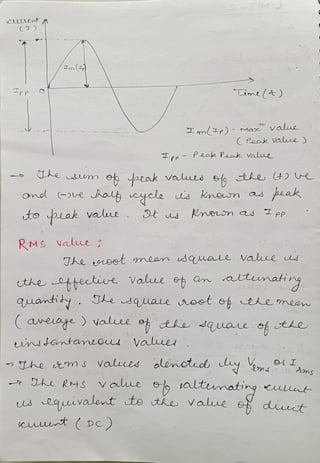 current
(I)
Im(Ip)
IPP
0
Time(t)
Im(Ip) - Maxm value
(Peak value)
IPP - Peak Peak value
→ The sum of peak values of the (+) ve
and (-)ve half cycle is known as peak
to peak value. It is known as IPP
RMS value:
The root mean square value is
the effective value of an alternating
quantity. The square root of the mean
(average) value of the square of the
instantaneous values.
→ The rms values denoted by Vrms or Irms
→ The RMS value of alternating current
is equivalent to the value of direct
current (DC)